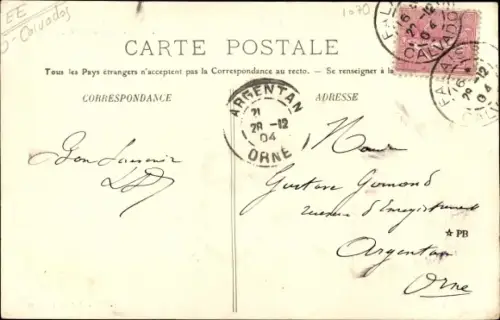 EE
Calvados
1070
CARTE POSTALE
Tous les Pays étrangers n'acceptent pas la Correspondance au recto. — Se renseigner à la
CORRESPONDANCE
ADRESSE
FALAISE
28-12
04
CALVADOS
FALAISE
28-12
04
ARGENTAN
21
28-12
04
ORNE
Bon Souvenir
Gustave
d'Enregistrement
★ PB
Argentan
Orne